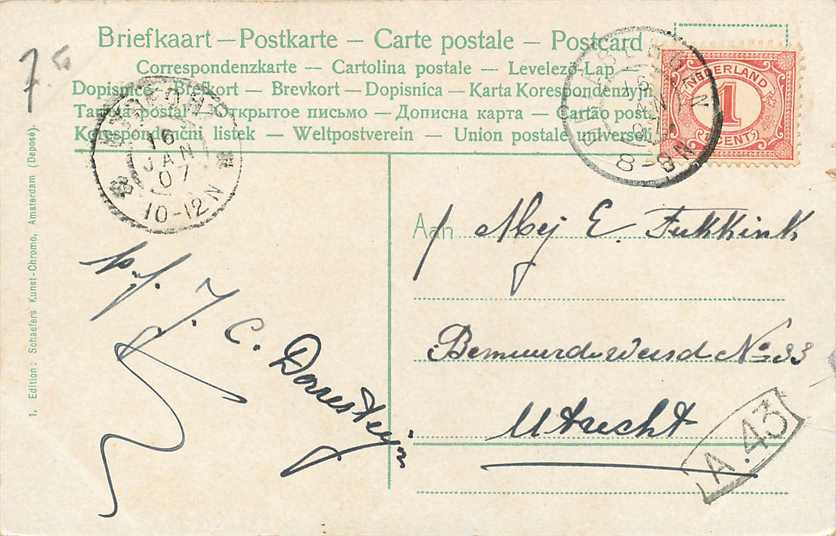 7.50
Briefkaart — Postkarte — Carte postale — Postcard
Correspondenzkarte — Cartolina postale — Levelező-Lap
Dopisnice — Brefkort — Brevkort — Dopisnica — Karta Korespondencyjna
postal — открытое письмо — Дописна карта — Cartão postal
Korespondenční listek — Weltpostverein — Union postale universelle
NEDERLAND
1
CENT
8-9N
UTRECHT
16
JAN
07
10-12N
Aan
Mej E. Fukkink
J. C. Daresteijn
Bemuurde weerd No 33
Utrecht
A.43
1. Edition: Schaefers Kunst-Chromo, Amsterdam (Deposé).